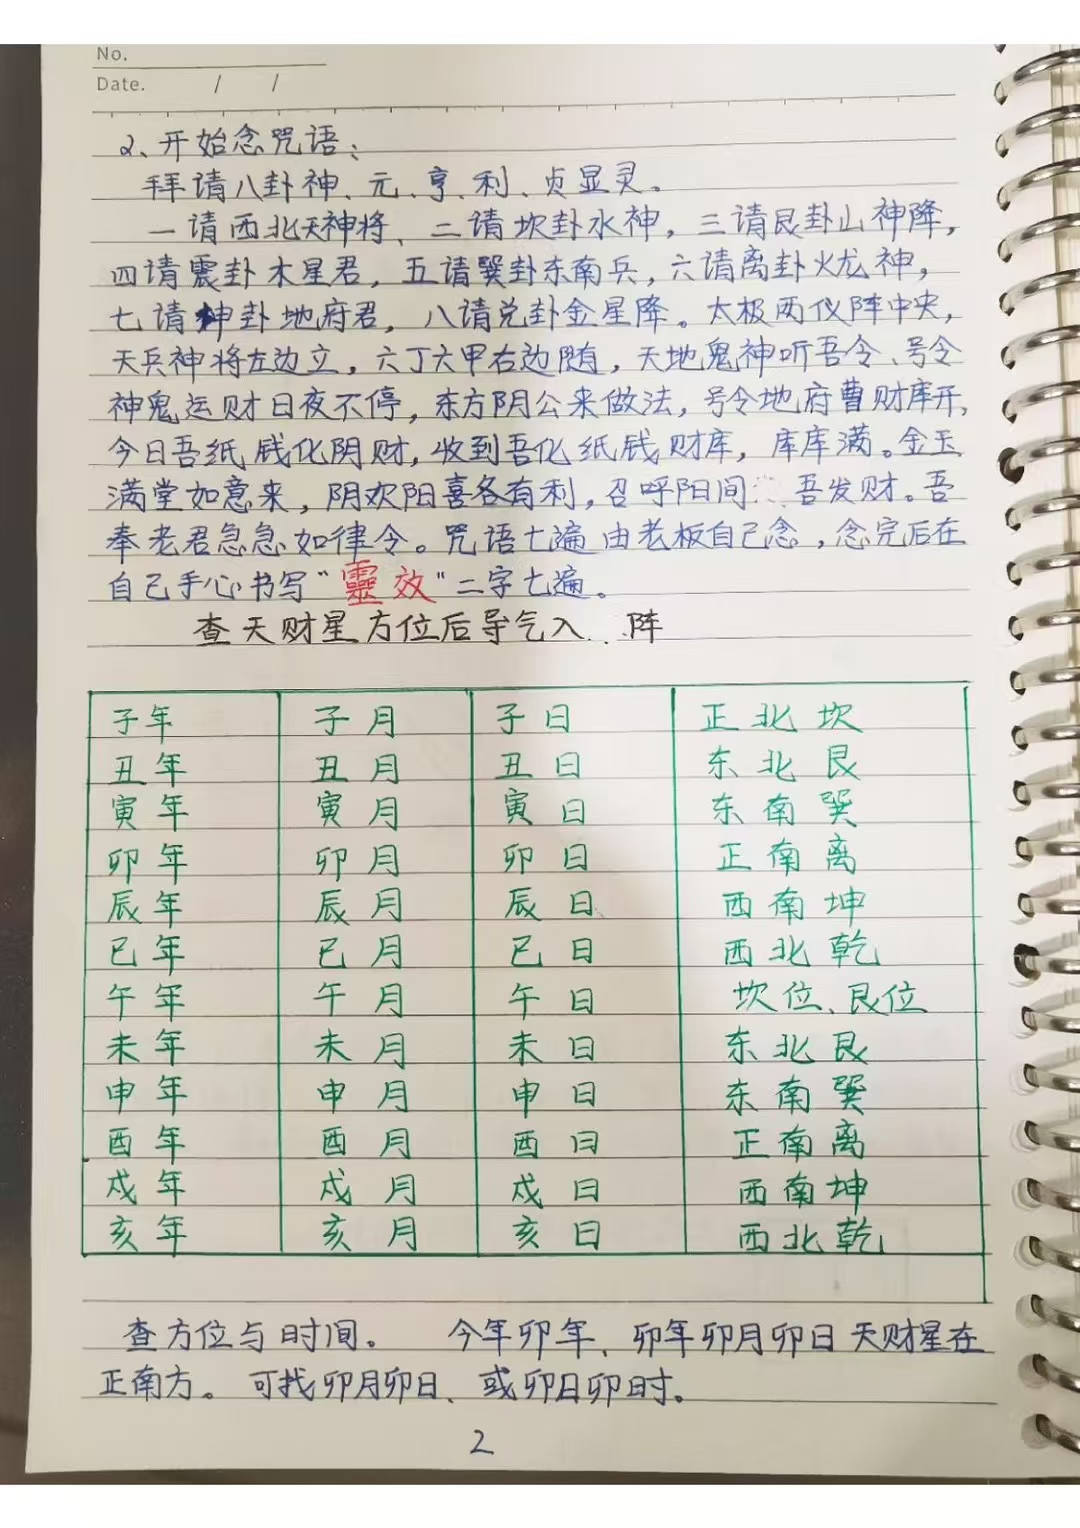 No.
Date. / /
2、开始念咒语:
拜请八卦神、元、亨、利、贞显灵。
一请西北天神将、二请坎卦水神，三请艮卦山神降，
四请震卦木星君，五请巽卦东南兵，六请离卦火龙神，
七请坤卦地府君，八请兑卦金星降。太极两仪阵中央，
天兵神将左边立，六丁六甲右边随，天地鬼神听吾令、号令
神鬼运财日夜不停，东方阴公来做法，号令地府曹财库开，
今日吾纸钱化阴财，收到吾化纸钱财库，库库满。金玉
满堂如意来，阴欢阳喜各有利，召呼阳间 吾发财。吾
奉老君急急如律令。咒语七遍由老板自己念，念完后在
自己手心书写“靈效”二字七遍。
查天财星方位后导气入 阵
子年 子月 子日 正北坎
丑年 丑月 丑日 东北艮
寅年 寅月 寅日 东南巽
卯年 卯月 卯日 正南离
辰年 辰月 辰日 西南坤
巳年 巳月 巳日 西北乾
午年 午月 午日 坎位、艮位
未年 未月 未日 东北艮
申年 申月 申日 东南巽
酉年 酉月 酉日 正南离
戍年 戍月 戍日 西南坤
亥年 亥月 亥日 西北乾
查方位与时间。 今年卯年、卯年卯月卯日天财星在
正南方。可找卯月卯日、或卯日卯时。
2